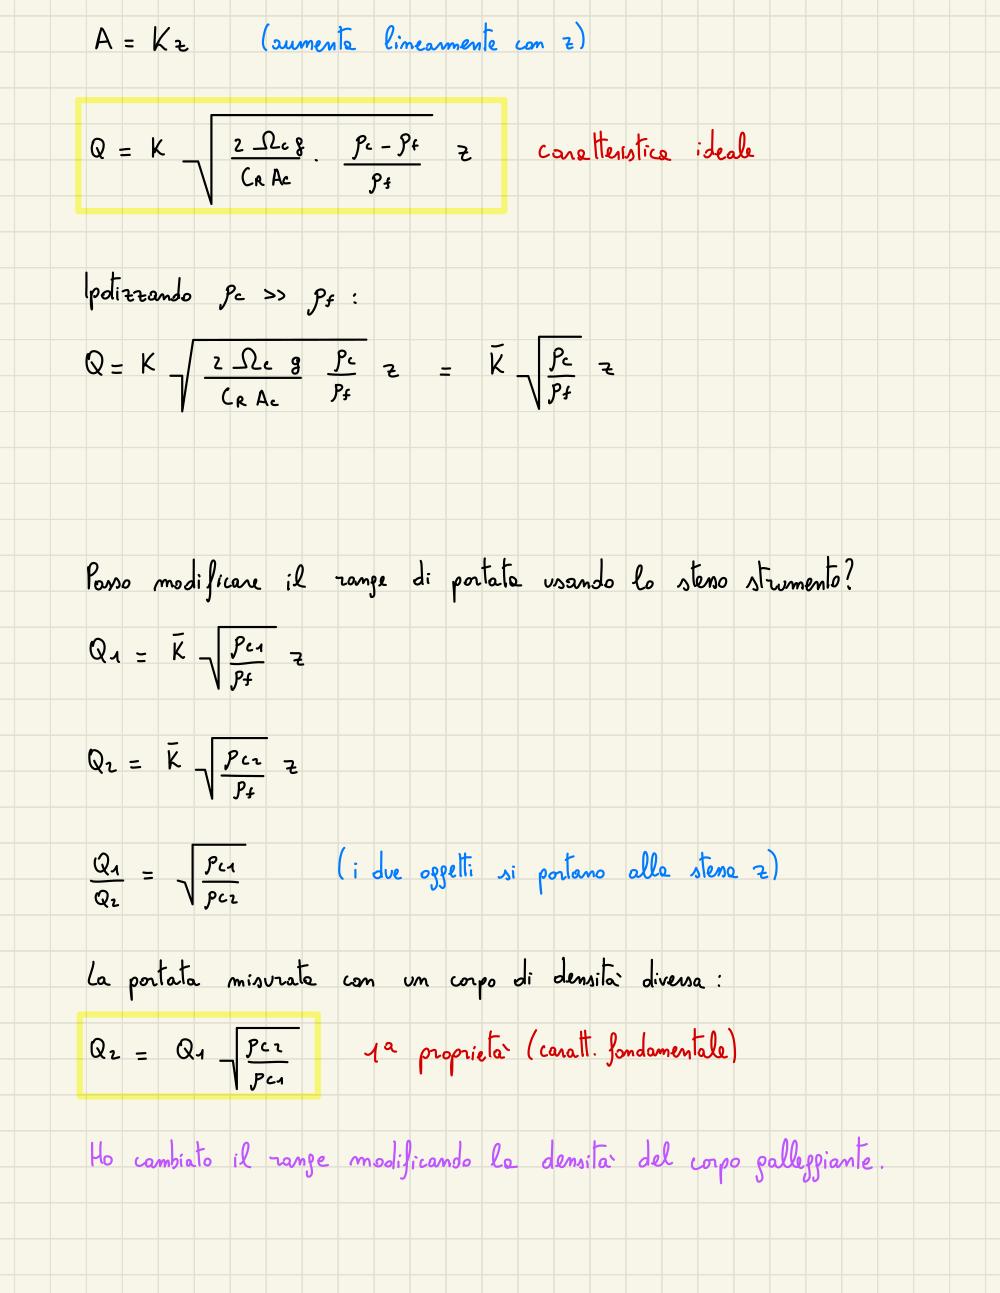 A = Kz (aumenta linearmente con z)
Q = K √(2 Ωc g / CR Ac · ρc - ρf / ρf) z caratteristica ideale
Ipotizzando ρc >> ρf :
Q = K √(2 Ωc g / CR Ac ρc / ρf) z = K̄ √(ρc / ρf) z
Posso modificare il range di portata usando lo stesso strumento?
Q1 = K̄ √(ρc1 / ρf) z
Q2 = K̄ √(ρc2 / ρf) z
Q1 / Q2 = √(ρc1 / ρc2) (i due oggetti si portano alla stessa z)
La portata misurata con un corpo di densità diversa :
Q2 = Q1 √(ρc2 / ρc1) 1ª proprietà (caratt. fondamentale)
Ho cambiato il range modificando la densità del corpo galleggiante.